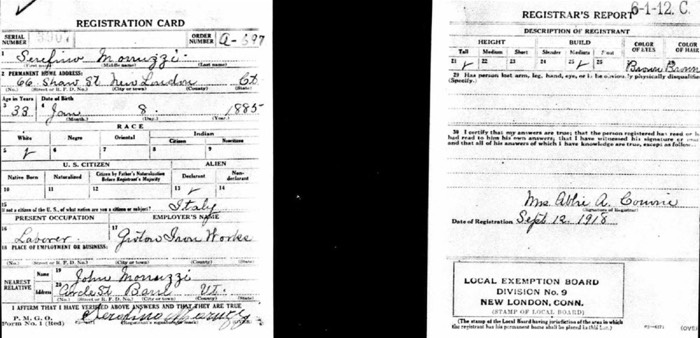 REGISTRATION CARD
SERIAL NUMBER
ORDER NUMBER a-697
1 Serefino Monuzzi
(First name) (Middle name) (Last name)
2 PERMANENT HOME ADDRESS:
66 Shaw St New London Ct
(No.) (Street or R. F. D. No.) (City or town) (County) (State)
Age in Years Date of Birth
3 33 4 Jan 8 1885
(Month.) (Day.) (Year.)
RACE
White Negro Oriental Indian
Citizen Noncitizen
5 ✓ 6 7 8 9
U. S. CITIZEN ALIEN
Native Born Naturalized Citizen by Father's Naturalization Before Registrant's Majority Declarant Non-declarant
10 11 12 13 ✓ 14
15 If not a citizen of the U. S., of what nation are you a citizen or subject? Italy
PRESENT OCCUPATION EMPLOYER'S NAME
16 Laborer 17 Groton Iron Works
18 PLACE OF EMPLOYMENT OR BUSINESS:
(No.) (Street or R. F. D. No.) (City or town) (County) (State)
NEAREST RELATIVE
Name 19 John Monuzzi
Address 20 Circle St Barre Vt.
(No.) (Street or R. F. D. No.) (City or town) (County) (State)
I AFFIRM THAT I HAVE VERIFIED ABOVE ANSWERS AND THAT THEY ARE TRUE
P. M. G. O.
Form No. 1 (Red) Serefino
6-1-12. C.
REGISTRAR'S REPORT
DESCRIPTION OF REGISTRANT
HEIGHT BUILD COLOR OF EYES COLOR OF HAIR
Tall Medium Short Slender Medium Stout
21 ✓ 22 23 24 25 ✓ 26 27 Brown 28 Brown
29 Has person lost arm, leg, hand, eye, or is he obviously physically disqualified
(Specify.)
30 I certify that my answers are true; that the person registered has read or has
had read to him his own answers; that I have witnessed his signature or
and that all of his answers of which I have knowledge are true, except as follows:
Mrs. Abbie A.
(Signature of Registrar)
Date of Registration Sept 12, 1918
LOCAL EXEMPTION BOARD
DIVISION No. 9
NEW LONDON, CONN.
(STAMP OF LOCAL BOARD)
(The stamp of the Local Board having jurisdiction of the area in which
the registrant has his permanent home shall be placed in this box.)
(OVER)